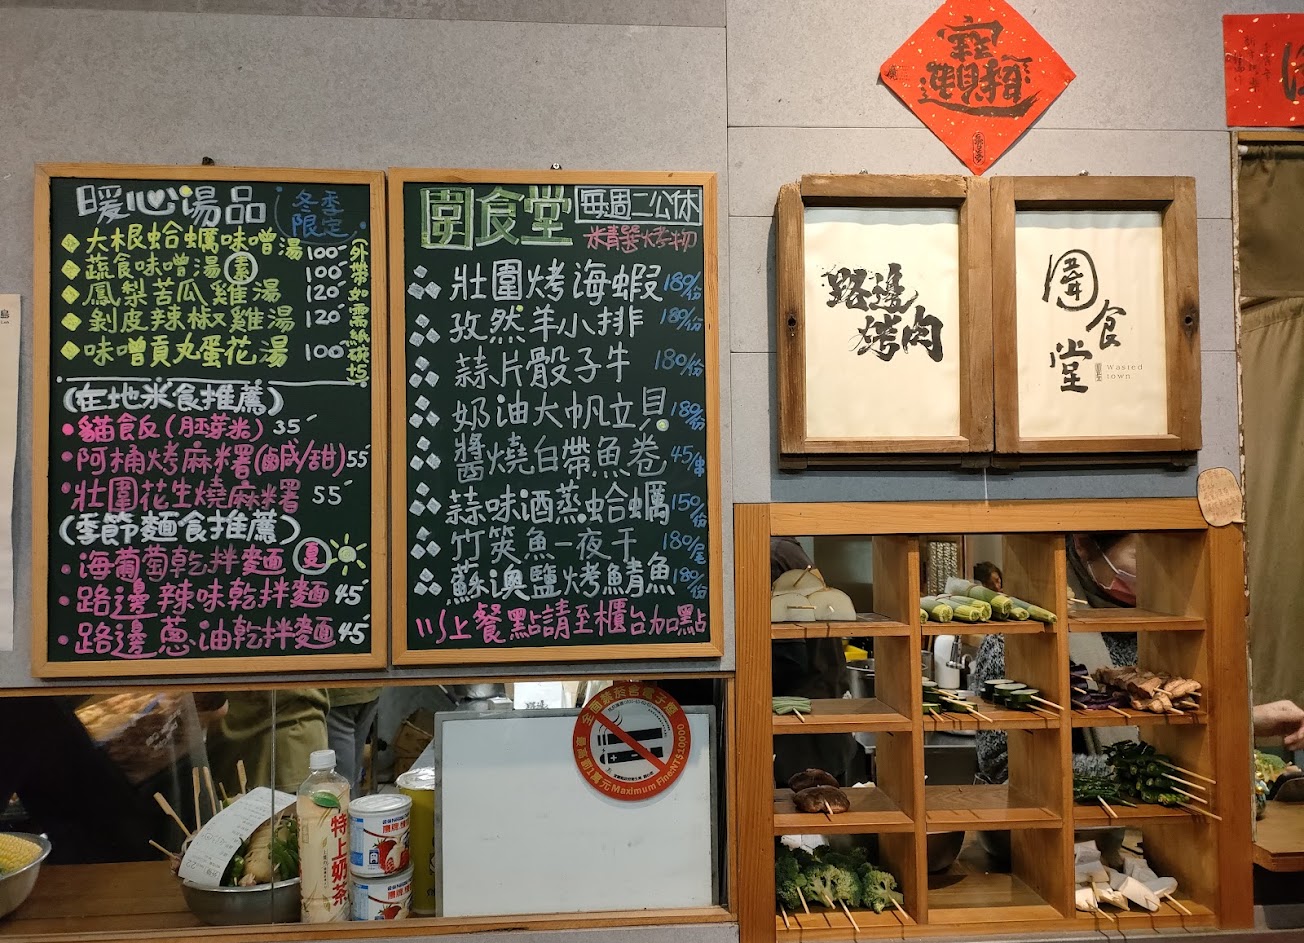 暖心湯品
冬季
限定
大根蛤蠣味噌湯 100
蔬食味噌湯 素 100
鳳梨苦瓜雞湯 120
剝皮辣椒雞湯 120
味噌貢丸蛋花湯 100
(外帶如需紙碗+5
(在地米食推薦)
貓飯(胚芽米) 35
阿桶烤麻糬(鹹/甜) 55
壯圍花生燒麻糬 55
(季節麵食推薦)
海葡萄乾拌麵 夏
路邊辣味乾拌麵 45
路邊蔥油乾拌麵 45
圍食堂
每週二公休
精選烤物
壯圍烤海蝦 180/份
孜然羊小排 180/份
蒜片骰子牛 180/份
奶油大帆立貝 180/份
醬燒白帶魚卷 45/串
蒜味酒蒸蛤蠣 150/份
竹筴魚一夜干 180/尾
蘇澳鹽烤鯖魚 180/份
以上餐點請至櫃台加點
路邊
烤肉
圍
食
堂
Wasted
town
特上奶茶
全面禁菸含電子煙
最高罰1萬元 Maximum Fine:NT$10000